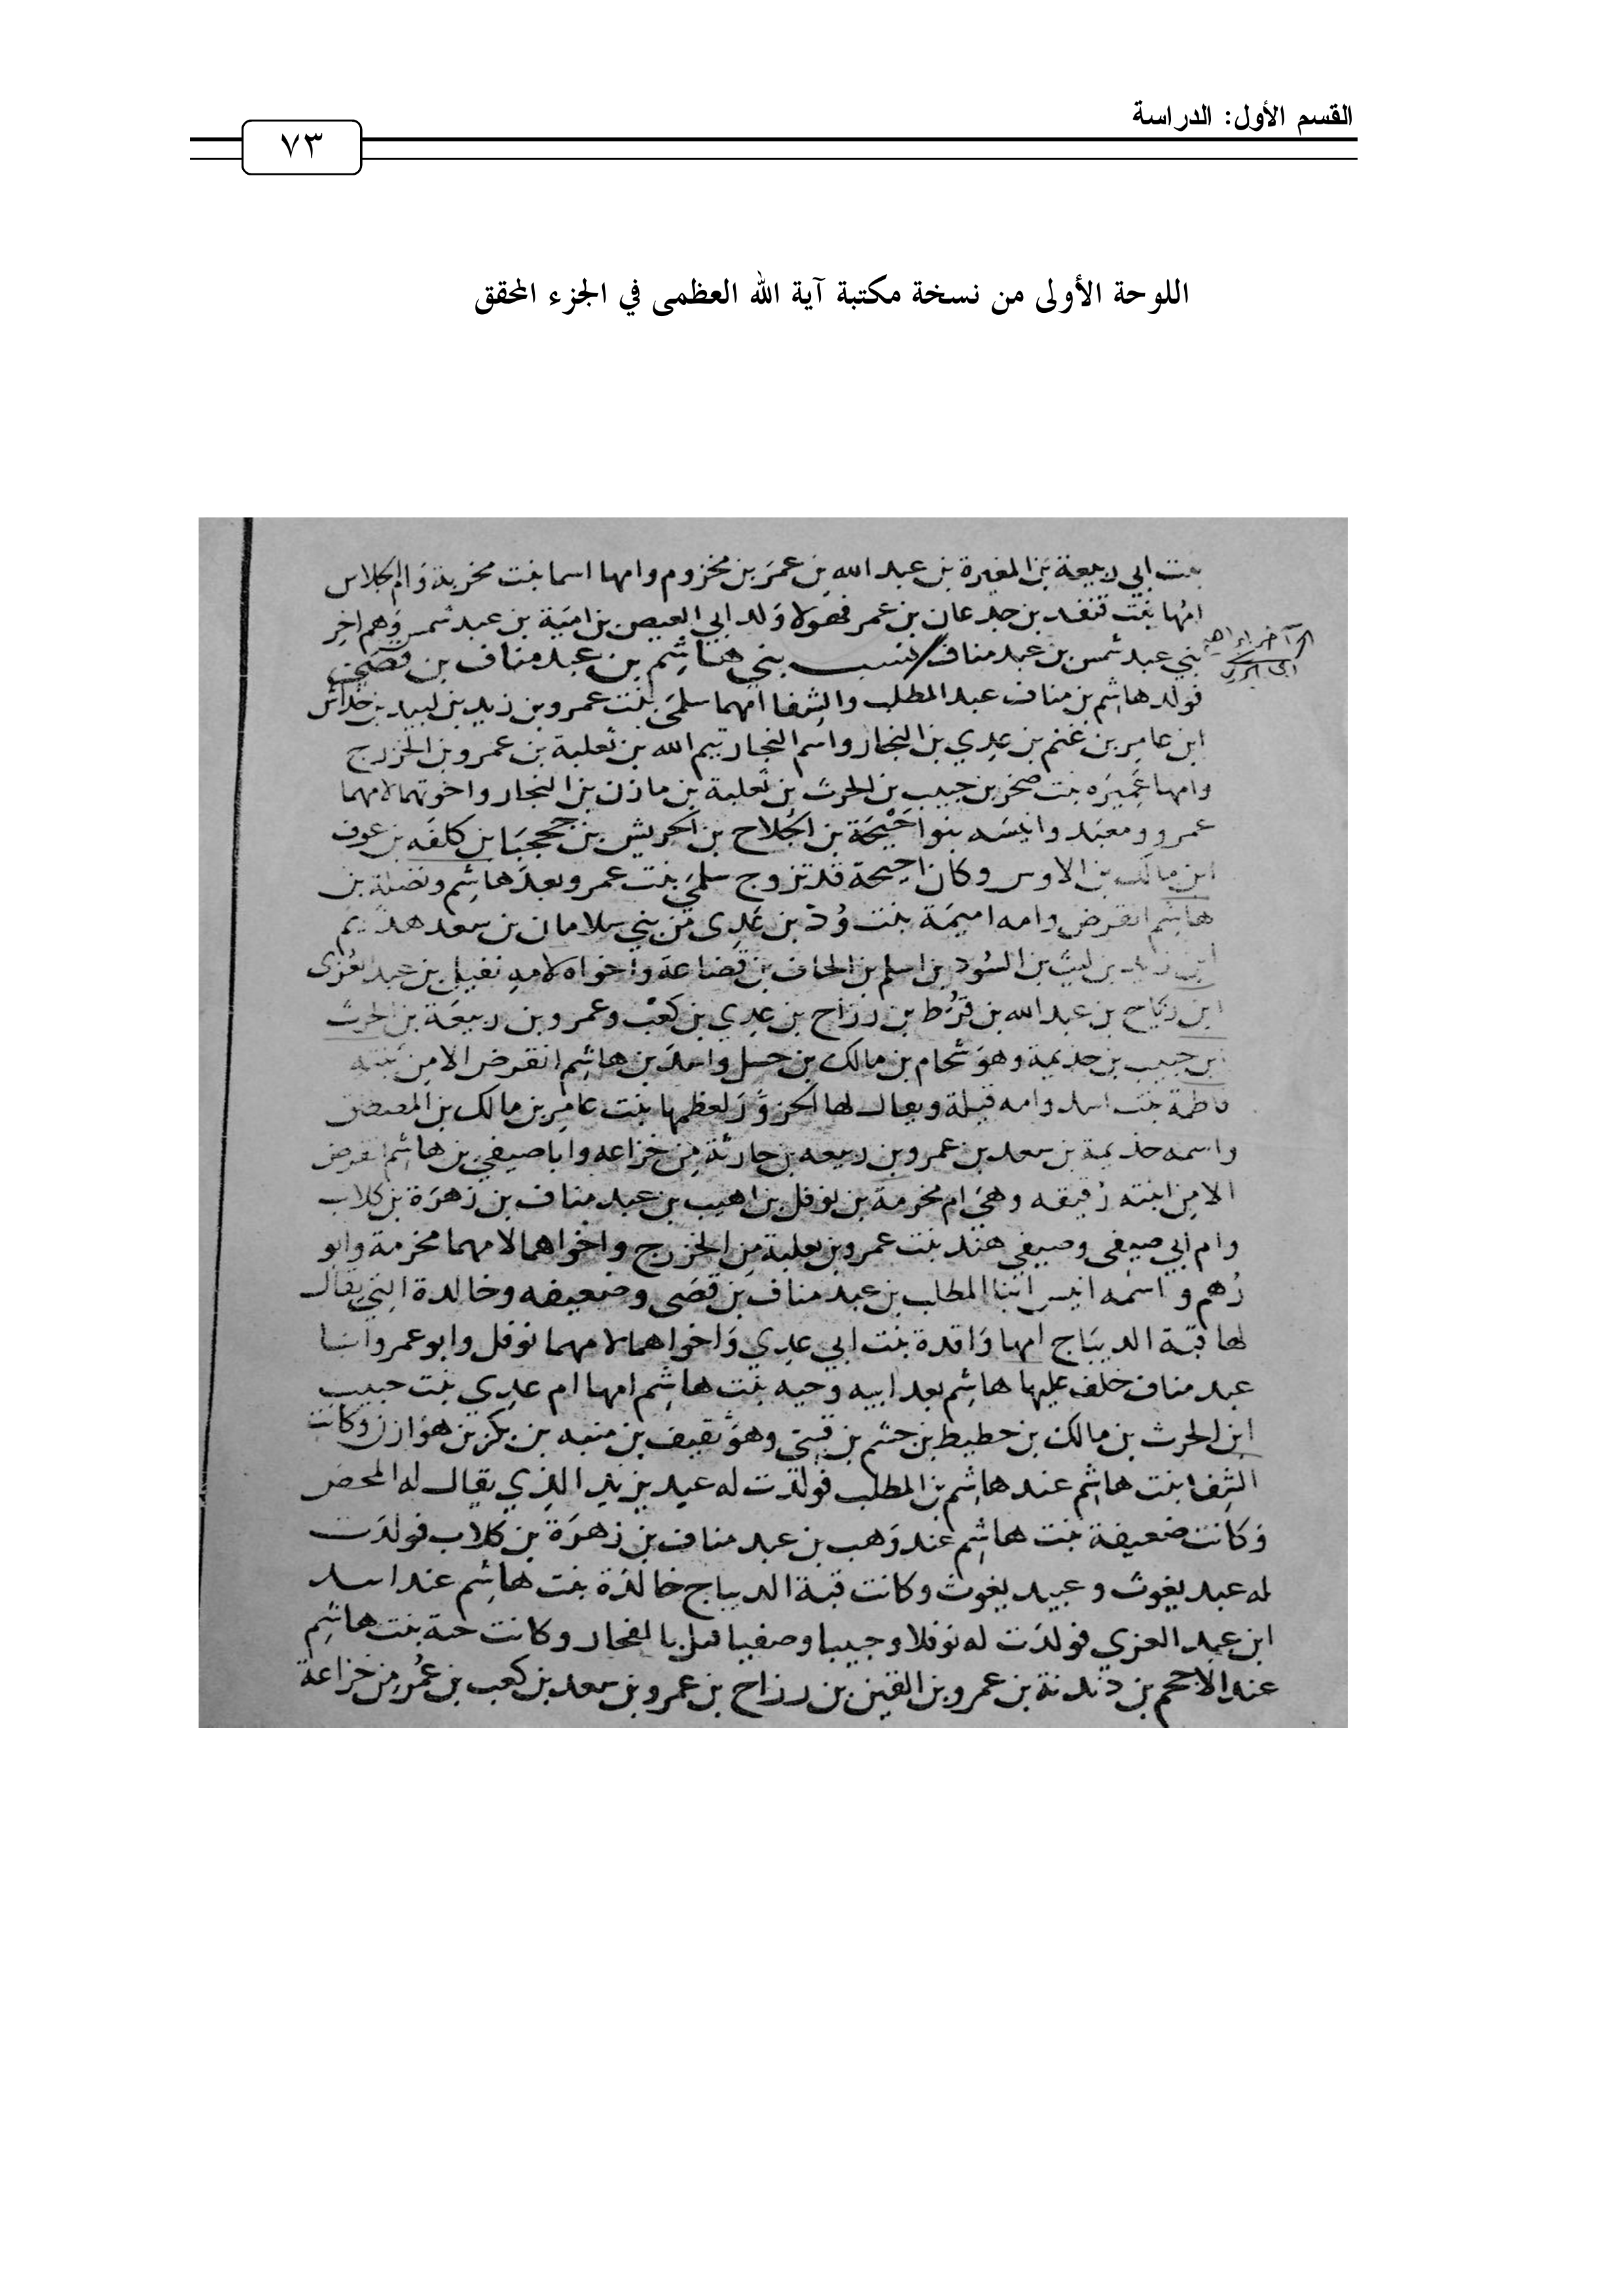 القسم الأول: الدراسة
٧٣
اللوحة الأولى من نسخة مكتبة آية الله العظمى في الجزء المحقق
بنت ابي ربيعة بن المغيرة بن عبد الله بن عمر بن مخزوم وامها اسما بنت مخربة وام الجلاس
امها بنت قنفد بن جدعان بن عمر فهولا ولد ابي العيص بن امية بن عبد شمس وهم اخر
بني عبد شمس بن عبد مناف نسب بني هاشم بن عبد مناف بن قصي
فولد هاشم بن مناف عبد المطلب والشفا امهما سلمى بنت عمرو بن زيد بن لبيد بن خداش
ابن عامر بن غنم بن عدي بن النجار واسم النجار تيم الله بن ثعلبة بن عمرو بن الخزرج
وامها عميره بنت صخر بن حبيب بن الحرث بن ثعلبة بن مازن بن النجار واخوتهما لامهما
عمرو ومعبد وانيسه بنوا احيحة بن الجلاح بن الحريش بن جحجبا بن كلفه بن عوف
ابن مالك بن الاوس وكان احيحة قد تزوج سلمى بنت عمرو بعد هاشم ونضلة بن
هاشم انقرض وامه اميمة بنت ود بن عدى من بني سلامان بن سعد هديم
ابن زيد بن ليث بن السود بن اسلم بن الحاف بن قضاعة واخواه لامه نفيل بن عبد العزى
ابن رياح بن عبد الله بن قرط بن رزاح بن عدي بن كعب وعمرو بن ربيعة بن الحرث
بن حبيب بن جذيمة وهو شحام بن مالك بن حسل واسد بن هاشم انقرض الا من بنته
فاطمة بنت اسد وامه قيلة ويقال لها الجزور لعظمها بنت عامر بن مالك بن المصطلق
واسمه جذيمة بن سعد بن عمرو بن ربيعه بن حارثة من خزاعه وابا صيفي بن هاشم انقرض
الا من ابنته رقيقه وهي ام مخرمة بن نوفل بن اهيب بن عبد مناف بن زهرة بن كلاب
وام ابي صيفى وصيفي هند بنت عمرو بن ثعلبة من الخزرج واخواهما لامهما مخرمة وابو
رهم واسمه انيس ابنا المطلب بن عبد مناف بن قصى وضعيفه وخالدة التي يقال
لها قبة الديباج امها واقدة بنت ابي عدي واخواهما لامهما نوفل وابو عمرو ابنا
عبد مناف خلف عليها هاشم بعد ابيه وحيه بنت هاشم امها ام عدي بنت حبيب
ابن الحرث بن مالك بن حطيط بن جشم بن قسي وهو ثقيف بن منبه بن بكر بن هوازن وكانت
الشفا بنت هاشم عند هاشم بن المطلب فولدت له عبد يزيد الذي يقال له المحض
وكانت ضعيفة بنت هاشم عند وهب بن عبد مناف بن زهرة بن كلاب فولدت
له عبد يغوث وعبيد يغوث وكانت قبة الديباج خالدة بنت هاشم عند اسد
ابن عبد العزي فولدت له نوفلا وحبيبا وصفيا قتل بالفجار وكانت حية بنت هاشم
عند الاجحم بن دندنة بن عمرو بن القين بن رزاح بن عمرو بن سعد بن كعب بن عمر من خزاعة